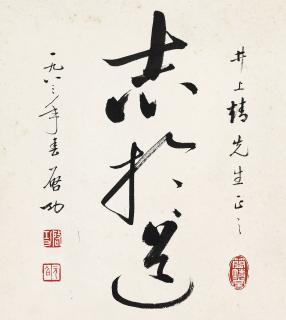 井上靖先生正之
志於道
一九八三年春 啓功